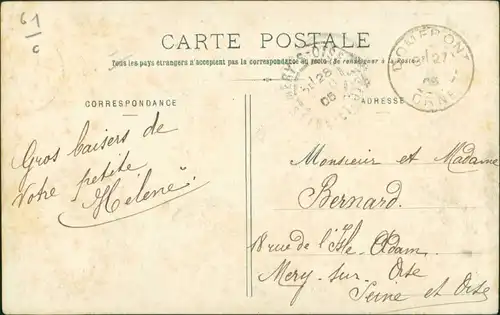 61
c
CARTE POSTALE
Tous les pays étrangers n'acceptent pas la correspondance au recto (Se renseigner à la Poste)
CORRESPONDANCE
ADRESSE
MERY-S-OISE
28
05
SEINE-ET-OISE
DOMFRONT
27
05
ORNE
Gros baisers de
Votre petite
Helene
Monsieur et Madame
Bernard.
18 rue de l'Isle Adam.
Mery-sur-Oise
Seine et Oise